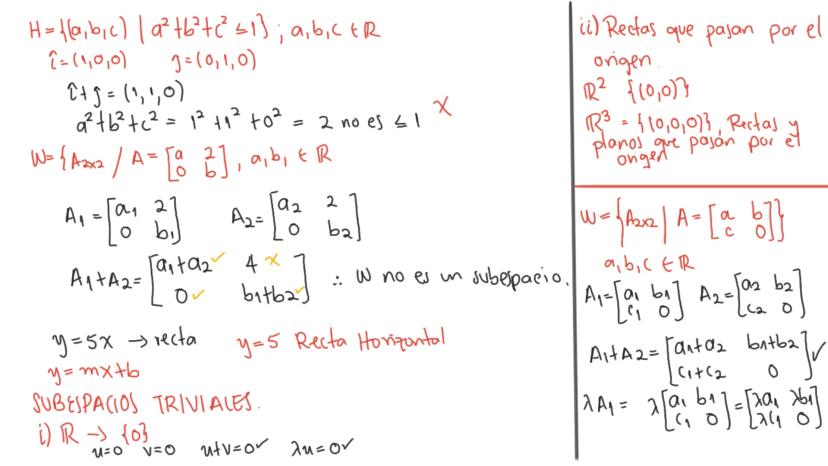 H = {(a,b,c) | a²+b²+c² ≤ 1} ; a,b,c ∈ ℝ
î = (1,0,0) ĵ = (0,1,0)
î+ĵ = (1,1,0)
a²+b²+c² = 1²+1²+0² = 2 no es ≤ 1 X
W = {A₂ₓ₂ / A = [a 2
0 b], a,b, ∈ ℝ
A₁ = [a₁ 2
0 b₁] A₂ = [a₂ 2
0 b₂]
A₁+A₂ = [a₁+a₂ ✓ 4 x
0 ✓ b₁+b₂ ✓] ∴ W no es un subespacio.
y = 5x → recta y = 5 Recta Horizontal
y = mx+b
SUBESPACIOS TRIVIALES.
i) ℝ → {0}
u=0 v=0 u+v=0 ✓ λu=0 ✓
ii) Rectas que pasan por el
origen.
ℝ² {(0,0)}
ℝ³ = {(0,0,0)}, Rectas y
planos que pasan por el
origen
W = {A₂ₓ₂ | A = [a b
c 0]}
a,b,c ∈ ℝ
A₁ = [a₁ b₁
c₁ 0] A₂ = [a₂ b₂
c₂ 0]
A₁+A₂ = [a₁+a₂ b₁+b₂
c₁+c₂ 0] ✓
λA₁ = λ[a₁ b₁
c₁ 0] = [λa₁ λb₁
λc₁ 0]